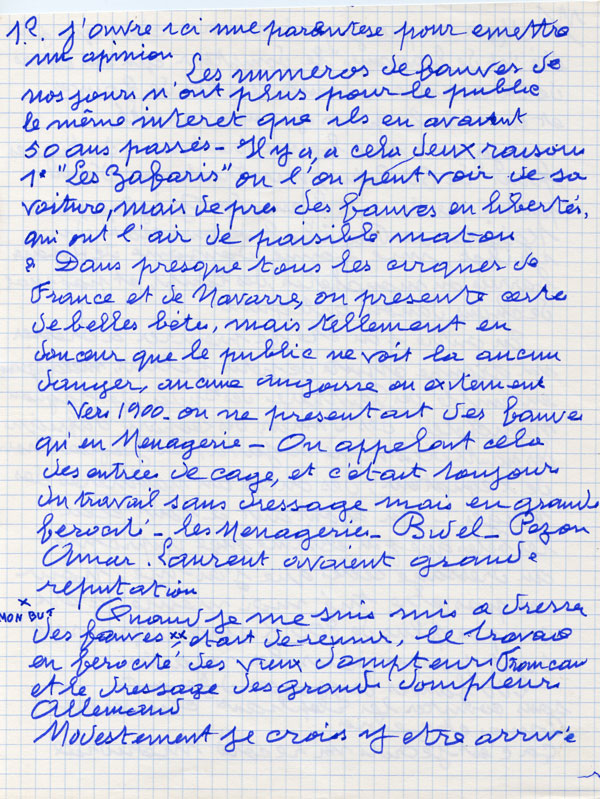 12. J'ouvre ici une parantese pour emettre
une opinion
Les numeros de fauves de
nos jours n'ont plus pour le public
le même interet que ils en avaient
50 ans passés - Il y a, a cela deux raisons
1° "Les Zafaris" ou l'on peut voir de sa
voiture, mais de pres des fauves en libertés,
qui ont l'air de paisible matou
2 Dans presque tous les cirques de
France et de Navarre, on presente certe
de belles bêtes, mais tellement en
douceur que le public ne voit la aucun
danger, aucune angoisse ou exitement
Vers 1900 - on ne presentait des fauve
qu'en Menagerie - On appelait cela
des entrée de cage, et c'était toujours
du travail sans dressage mais en grande
ferocité - les Menageries - Bidel - Pezon
Amar. Laurent avaient grande
reputation
x
MON BUT Quand je me suis mis a dresser
des fauves xx, etait de reunir, le travail
en ferocité des vieux dompteurs Francais
et le dressage des grands dompteurs
Allemand
Modestement je crois y etre arrivé